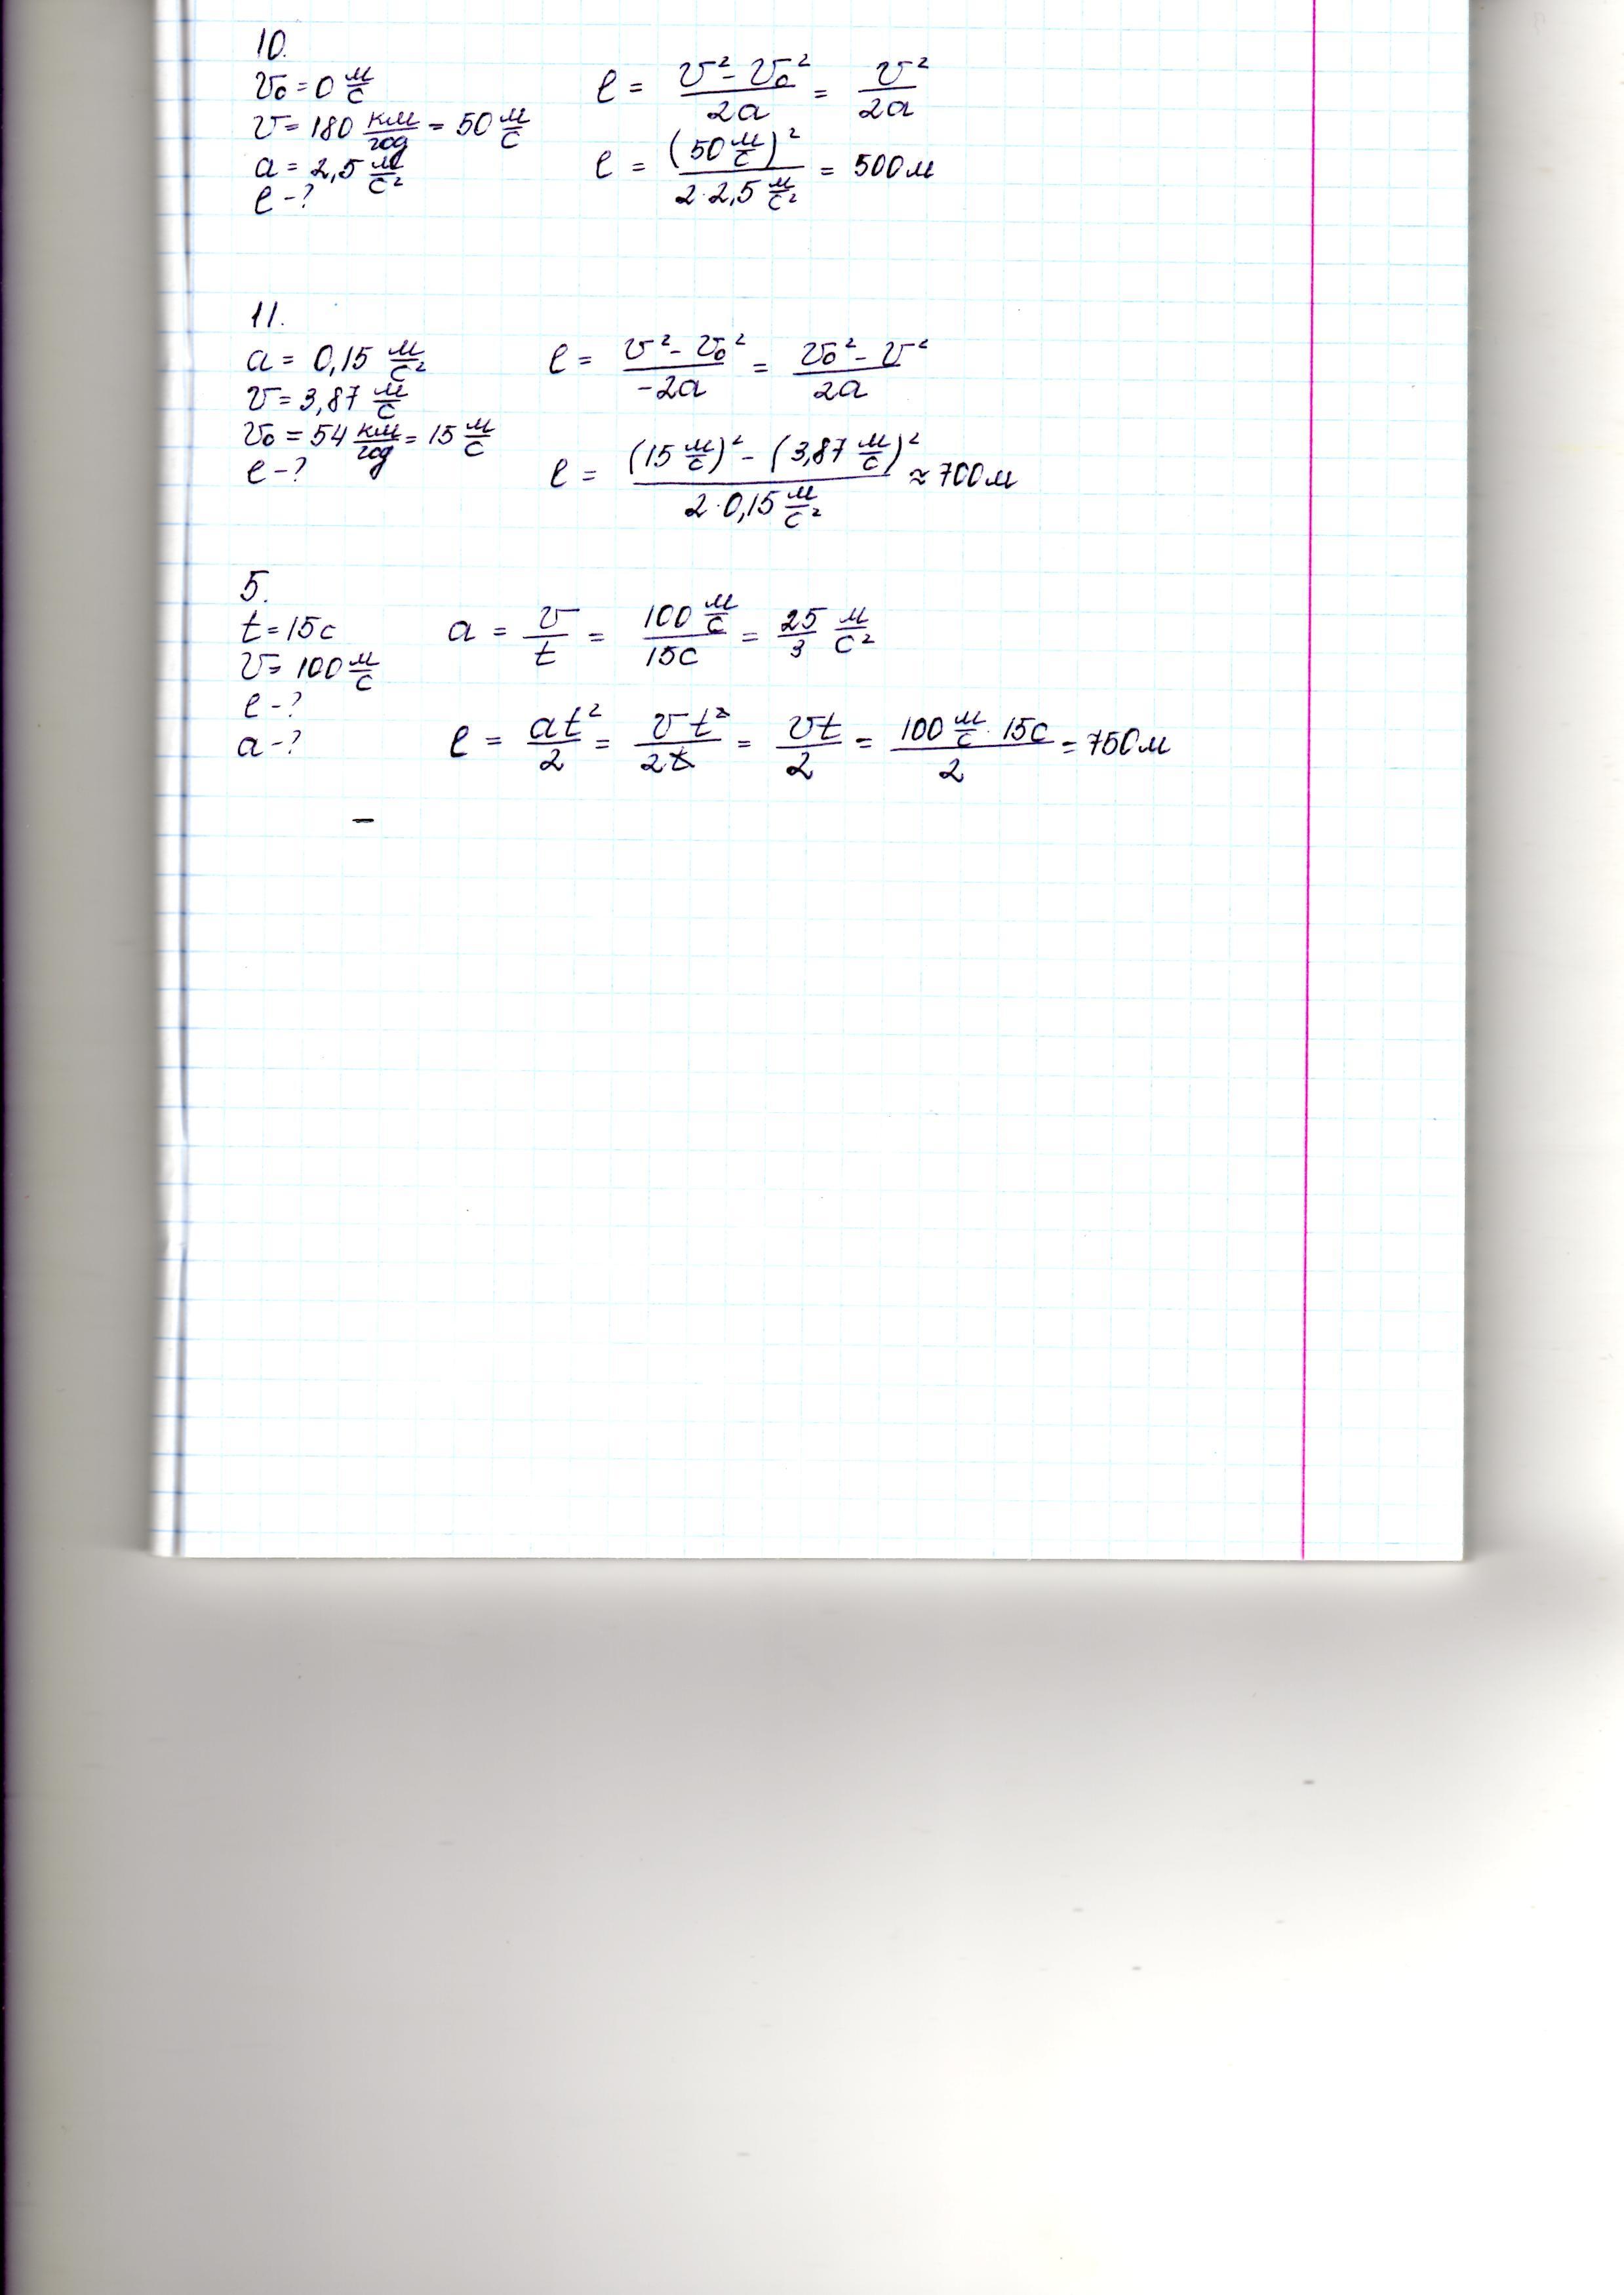 10.
v₀ = 0 м/с
v = 180 км/год = 50 м/с
a = 2,5 м/с²
l - ?
l = (v² - v₀²)/2a = v²/2a
l = (50 м/с)²/(2·2,5 м/с²) = 500 м
11.
a = 0,15 м/с²
v = 3,87 м/с
v₀ = 54 км/год = 15 м/с
l - ?
l = (v² - v₀²)/-2a = (v₀² - v²)/2a
l = ((15 м/с)² - (3,87 м/с)²)/(2·0,15 м/с²) ≈ 700 м
5.
t = 15 с
v = 100 м/с
l - ?
a - ?
a = v/t = 100 м/с / 15 с = 25/3 м/с²
l = at²/2 = vt²/2t = vt/2 = (100 м/с · 15 с)/2 = 750 м